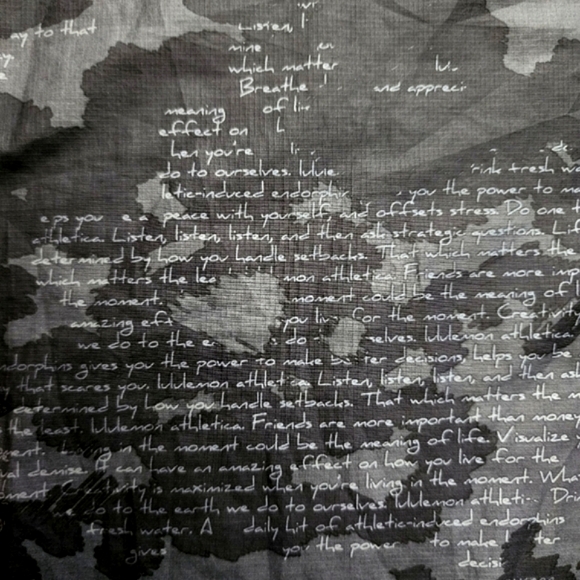 ay to that
Listen,
mine
which matter
Breathe and appreci
meaning of
effect on
hen you're
do to ourselves.
rink fresh
letic-induced endorphi you the power to
eps you peace with yourself, and offsets stress. Do one
athletica. Listen, listen, listen, and then ask strategic questions. Lif
determined by how you handle setbacks. That which matters the
which matters the lea mon athletica. Friends are more imp
the moment. moment could be the meaning of l
amazing eff you liv for the moment. Creativity
we do to the e do selves. lululemon athletica
ndorphins gives you the power to make be ter decisions, helps you be
that scares you. lululemon athletica Listen, listen, listen, and then ask
etermined by how you handle setbacks. That which matters the m
the least. lululemon athletica. Friends are more important than money
ment. Living in the moment could be the meaning of life. Visualize
al demise. It can have an amazing effect on how you live for the
oment tivity is maximized when you're living in the moment. Wha
do to the earth we do to ourselves. lululemon athleti Dri
fresh water. A daily hit of athletic-induced endorphins
gives you the power to make ter
decisi